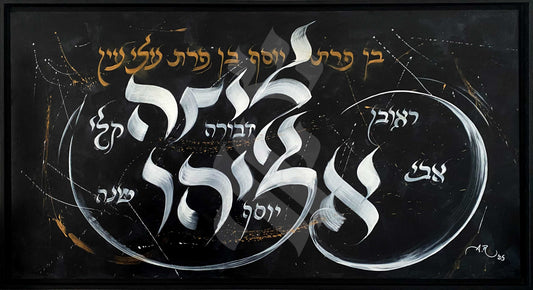 בן פרת יוסף בן פרת עלי עין
ליזה
ראובן דבורה קלי
אליהו
אבי
יוסף
A.R 25